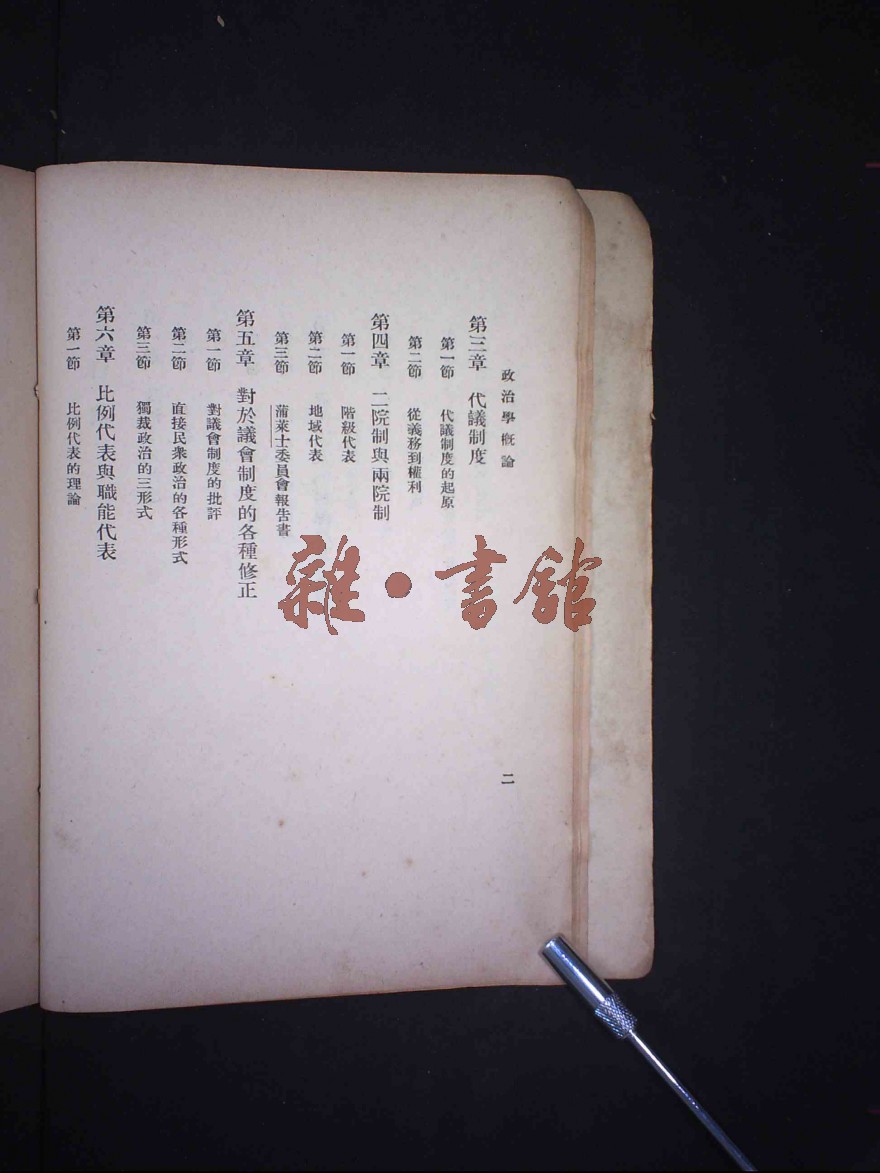 政治學概論
二
第三章 代議制度
第一節 代議制度的起原
第二節 從義務到權利
第四章 二院制與兩院制
第一節 階級代表
第二節 地域代表
第三節 蒲萊士委員會報告書
第五章 對於議會制度的各種修正
第一節 對議會制度的批評
第二節 直接民衆政治的各種形式
第三節 獨裁政治的三形式
第六章 比例代表與職能代表
第一節 比例代表的理論
雜·書館